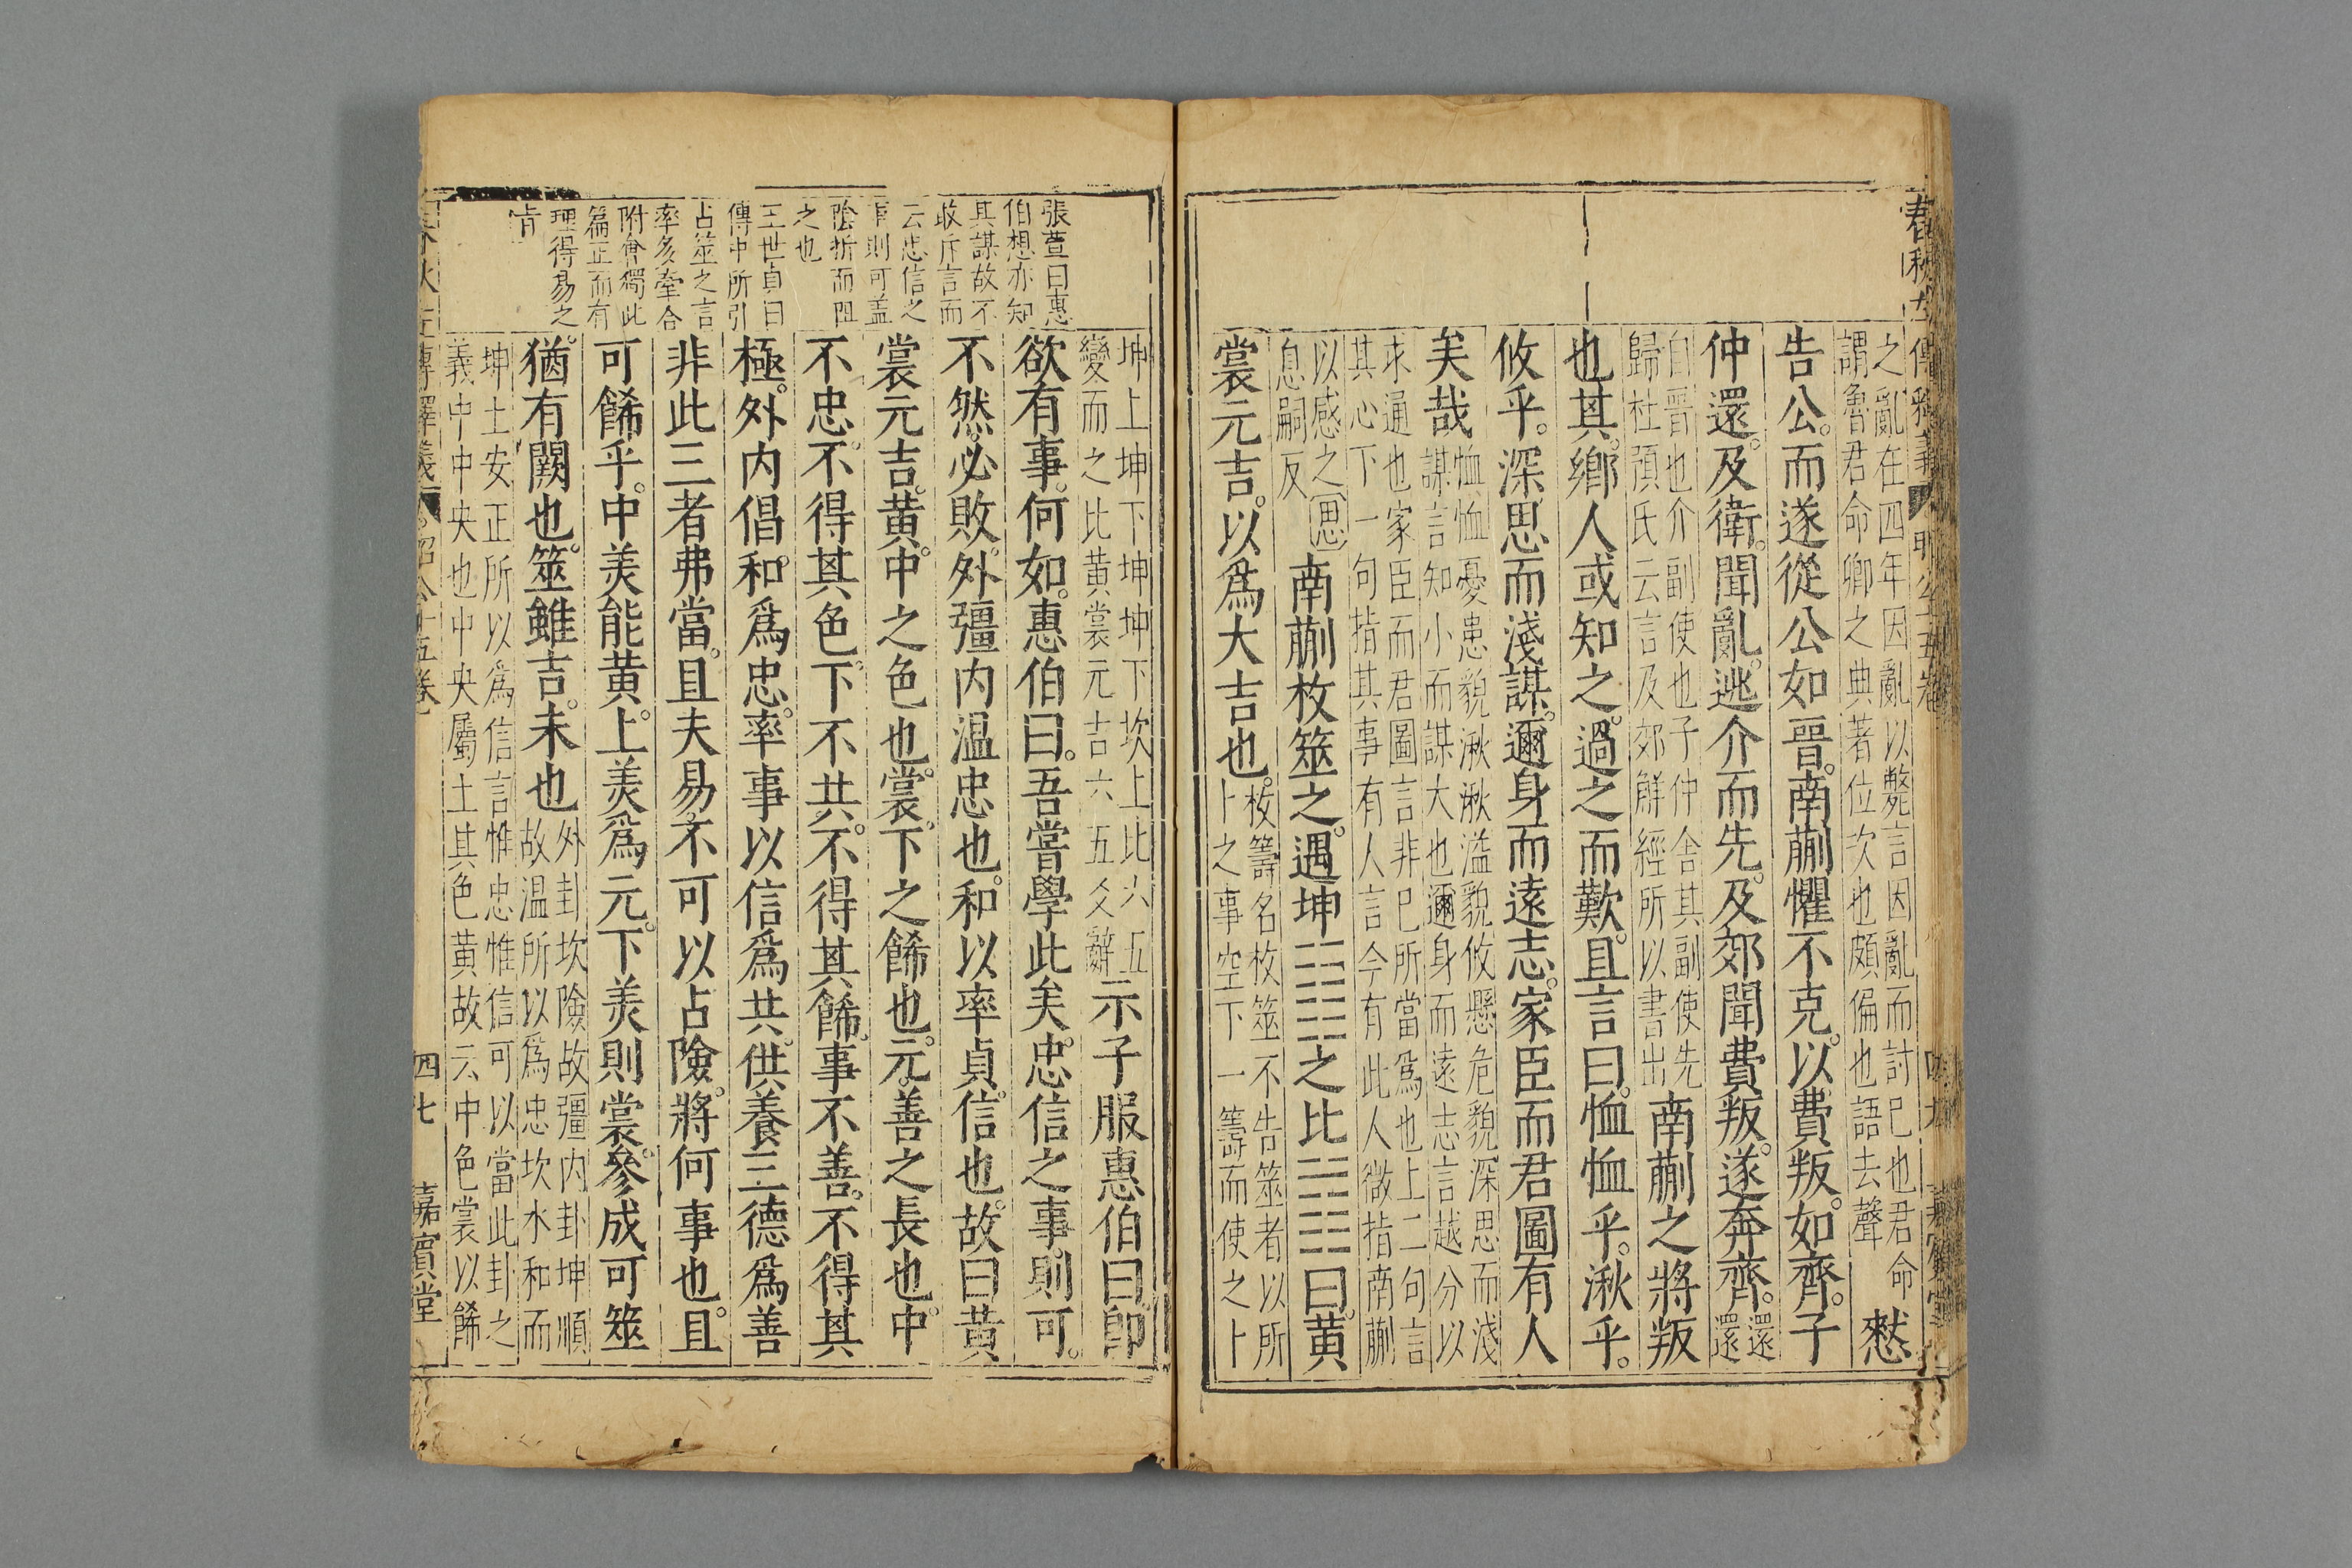 之亂在四年因亂以斃言因亂而討已也君命
謂魯君命卿之典著位次也頗偏也語去聲
憖
告公而遂從公如晉南蒯懼不克以費叛如齊子
仲還及衛聞亂逃介而先及郊聞費叛遂奔齊
還還
自晉也介副使也子仲舍其副使先
歸杜預氏云言及郊解經所以書出
南蒯之將叛
也其鄉人或知之過之而歎且言曰恤恤乎湫乎
攸乎深思而淺謀邇身而遠志家臣而君圖有人
矣哉
恤恤憂患貌湫湫溢貌攸懸危貌深思而淺
謀言知小而謀大也邇身而遠志言越分以
求通也家臣而君圖言非已所當為也上二句言
其心下一句指其事有人言今有此人微指南蒯
以感之思
息嗣反
南蒯枚筮之遇坤之比曰黃
裳元吉以爲大吉也
枚籌名枚筮不告筮者以所
卜之事空下一籌而使之卜
坤上坤下坤坤下坎上比六五
變而之比黃裳元吉六五爻辭
示子服惠伯曰卽
欲有事何如惠伯曰吾嘗學此矣忠信之事則可
不然必敗外彊内温忠也和以率貞信也故曰黃
裳元吉黃中之色也裳下之餙也元善之長也中
不忠不得其色下不共不得其餙事不善不得其
極外内倡和爲忠率事以信爲共供養三德爲善
非此三者弗當且夫易不可以占險將何事也且
可餙乎中美能黃上美爲元下美則裳參成可筮
猶有闕也筮雖吉未也
外卦坎險故彊内卦坤順
故温所以爲忠坎水和而
坤土安正所以爲信言惟忠惟信可以當此卦之
義中中央也中央屬土其色黃故云中色裳以餙
張萱曰惠
伯想亦知
其謀故不
敢斥言而
云忠信之
事則可盖
陰折而阻
之也
王世貞曰
傳中所引
占筮之言
率多牽合
附會獨此
篇正而有
理得易之
肯
春秋左傳釋義 昭公十五卷 四七 嘉賓堂